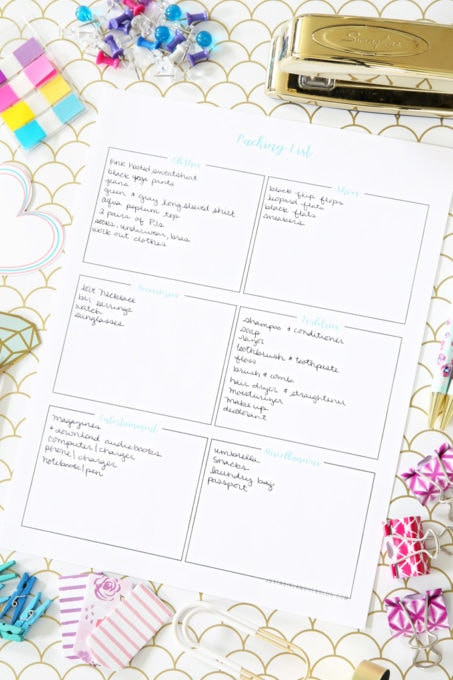 Swingline
Packing List
Clothes
pink hooded sweatshirt
black yoga pants
jeans
green & gray long sleeved shirt
aqua peplum top
2 pairs of PJs
socks, underwear, bras
work out clothes
Shoes
black flip flops
leopard flats
black flats
sneakers
Accessories
necklace
earrings
watch
sunglasses
Toiletries
shampoo & conditioner
soap
razor
toothbrush & toothpaste
floss
brush & comb
hair dryer & straightener
moisturizer
makeup
deodorant
Entertainment
magazines
+ download audiobooks
computer/charger
phone/charger
notebook/pen
Miscellaneous
umbrella
snacks
laundry bag
passport